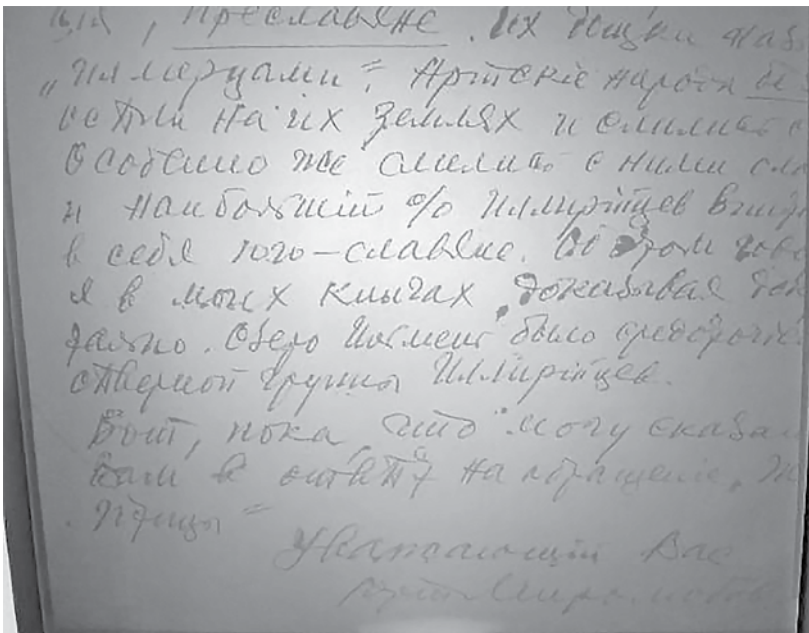 ція, Преславяне. Их тоцки наз
„Иллирцами". Арійскіе народы
осѣли на их землях и слились с
Особенно же слились с ними сло
и наибольшій % Иллирійцев
в себя юго-славяне. Об этом гово
я в моих книгах, доказывая
дально. Озеро Ильмень было средоточіе
сѣверной группы Иллирійцев.
Вот, пока, что могу сказа
Вам в отвѣт на обращеніе, „Ж
Птицы"
Уважающій Вас